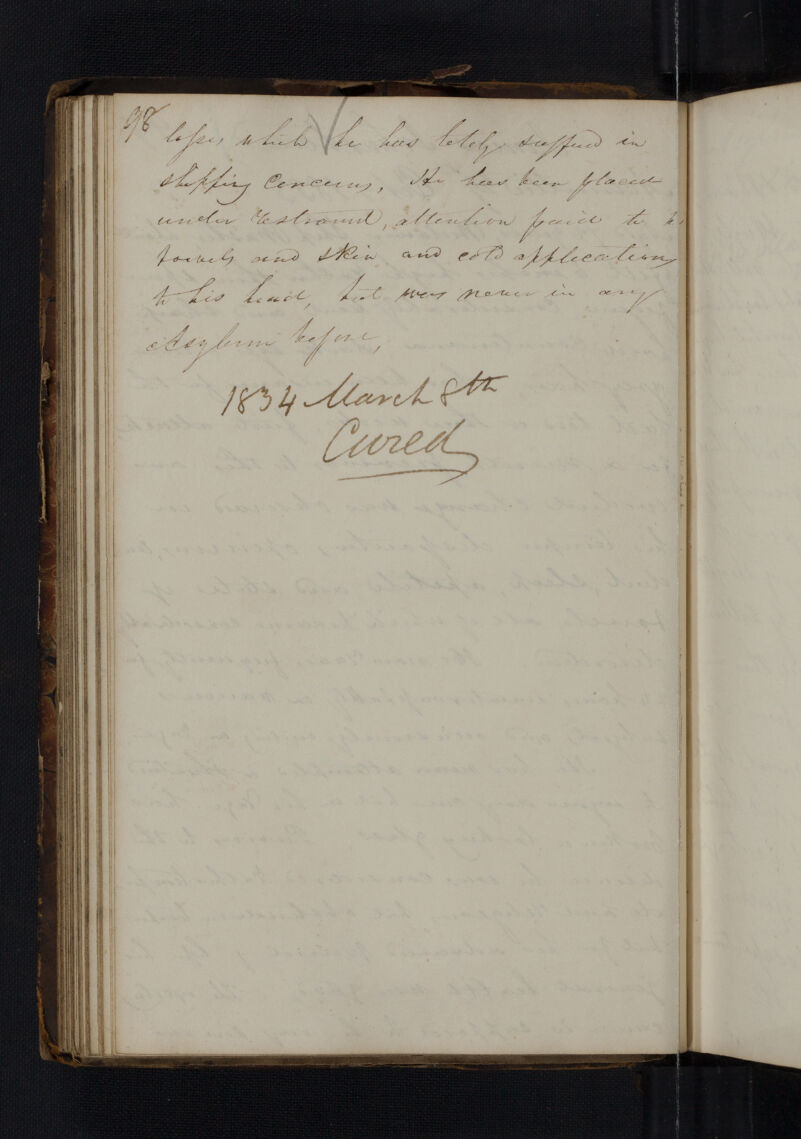 98
losses which he has lately suffered in
shipping concerns, He has been placed
under restraint, attention paid to his
bowels and skin and cold applications
to his head, but was never in any
Asylum before,
1834 March 8th
Cured